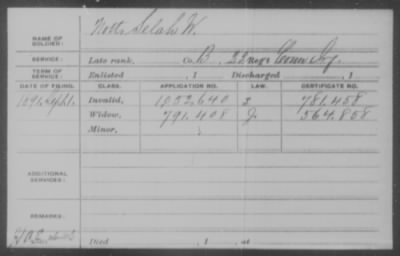 Nott, Selah W.
NAME OF SOLDIER:
SERVICE: Late rank, Co. B, 22 Reg't Conn Inf.
TERM OF SERVICE: Enlisted , 1 Discharged , 1
DATE OF FILING. CLASS. APPLICATION NO. LAW. CERTIFICATE NO.
1891, Sept 1. Invalid, 1052,640 781.458
Widow, 791,408 564.858
Minor,
ADDITIONAL SERVICES:
REMARKS:
Died , 1 , at